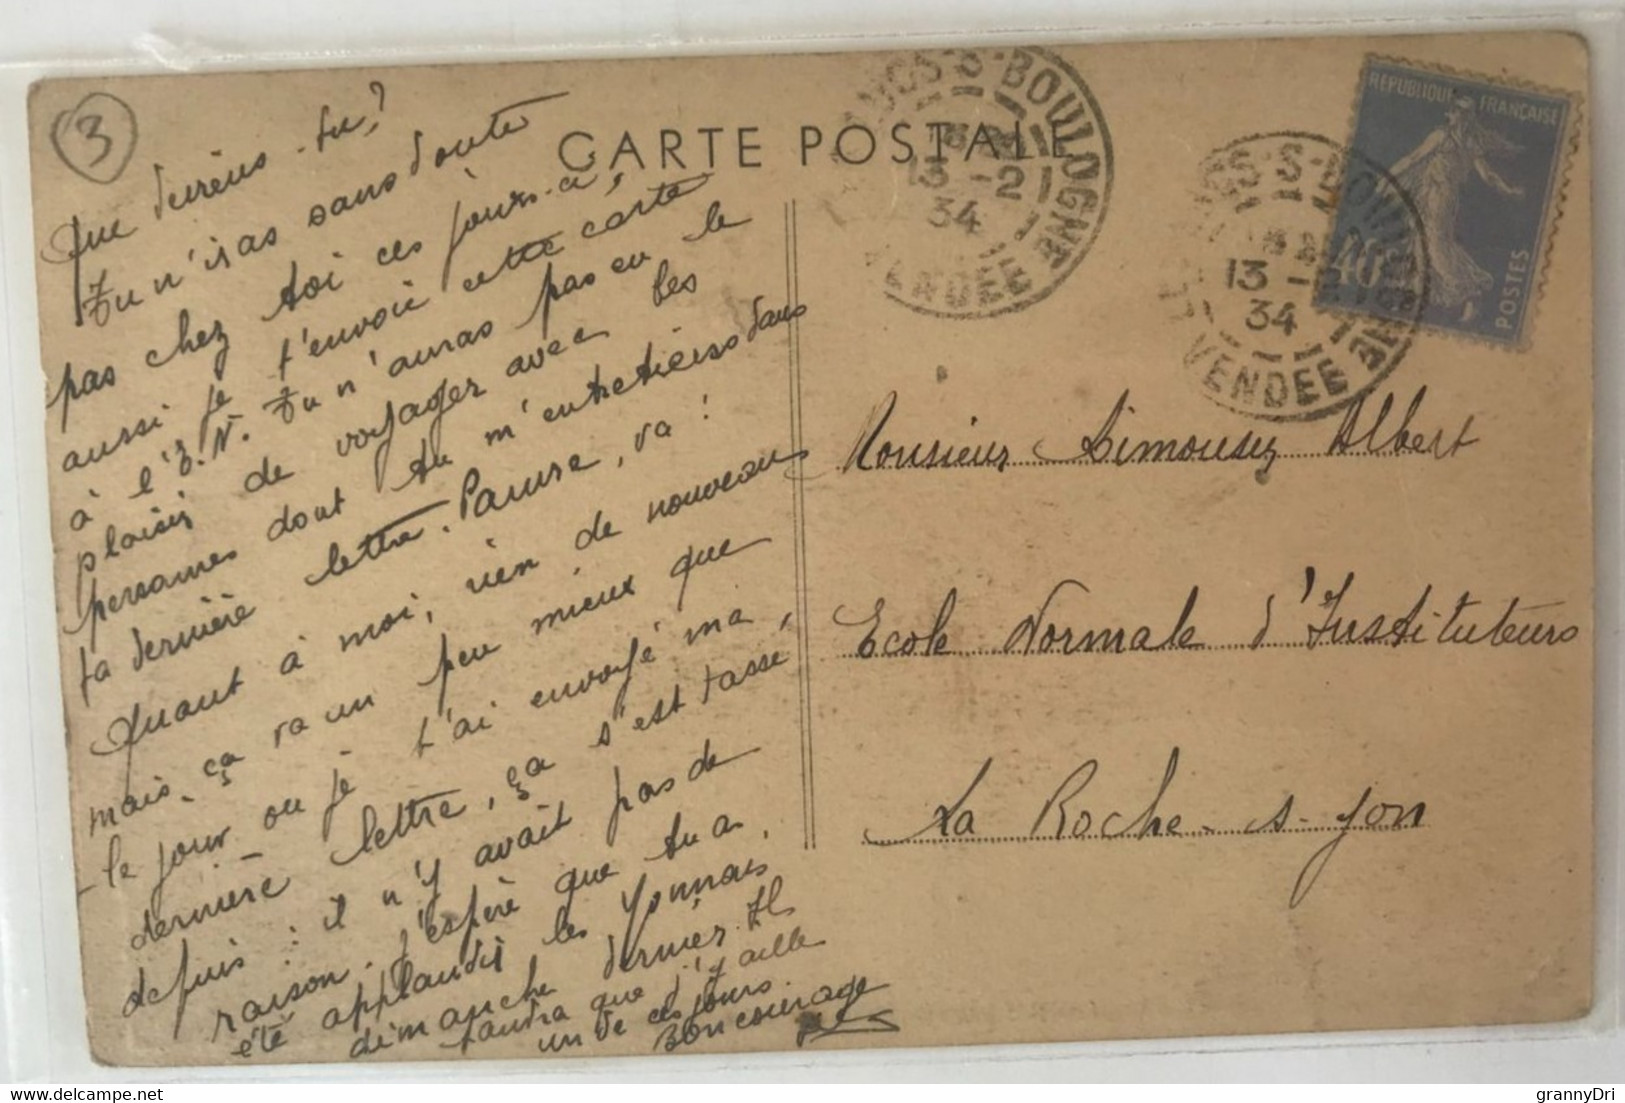 3
CARTE POSTALE
Que deviens-tu?
Tu n'iras sans doute
pas chez toi ces jours-ci,
aussi je t'envoie cette carte
à l'E.N. Tu n'auras pas eu le
plaisir de voyager avec les
personnes dont tu m'entretiens dans
ta dernière lettre. Pauvre, va!
Quant à moi, rien de nouveau
mais ça va un peu mieux que
le jour ou je t'ai envoyé ma
dernière lettre, ça s'est tassé
depuis: il n'y avait pas de
raison. J'espère que tu a
été applaudir les Yonnais
dimanche dernier. Il
faudra que j'y aille
un de ces jours.
Bon courage
S-BOULOGNE
13 -2
34
VENDEE
REPUBLIQUE FRANÇAISE
POSTES
40
13 -
34
VENDEE
Monsieur Limousez Albert
Ecole Normale d'Instituteurs
La Roche-s-Yon
grannyDri